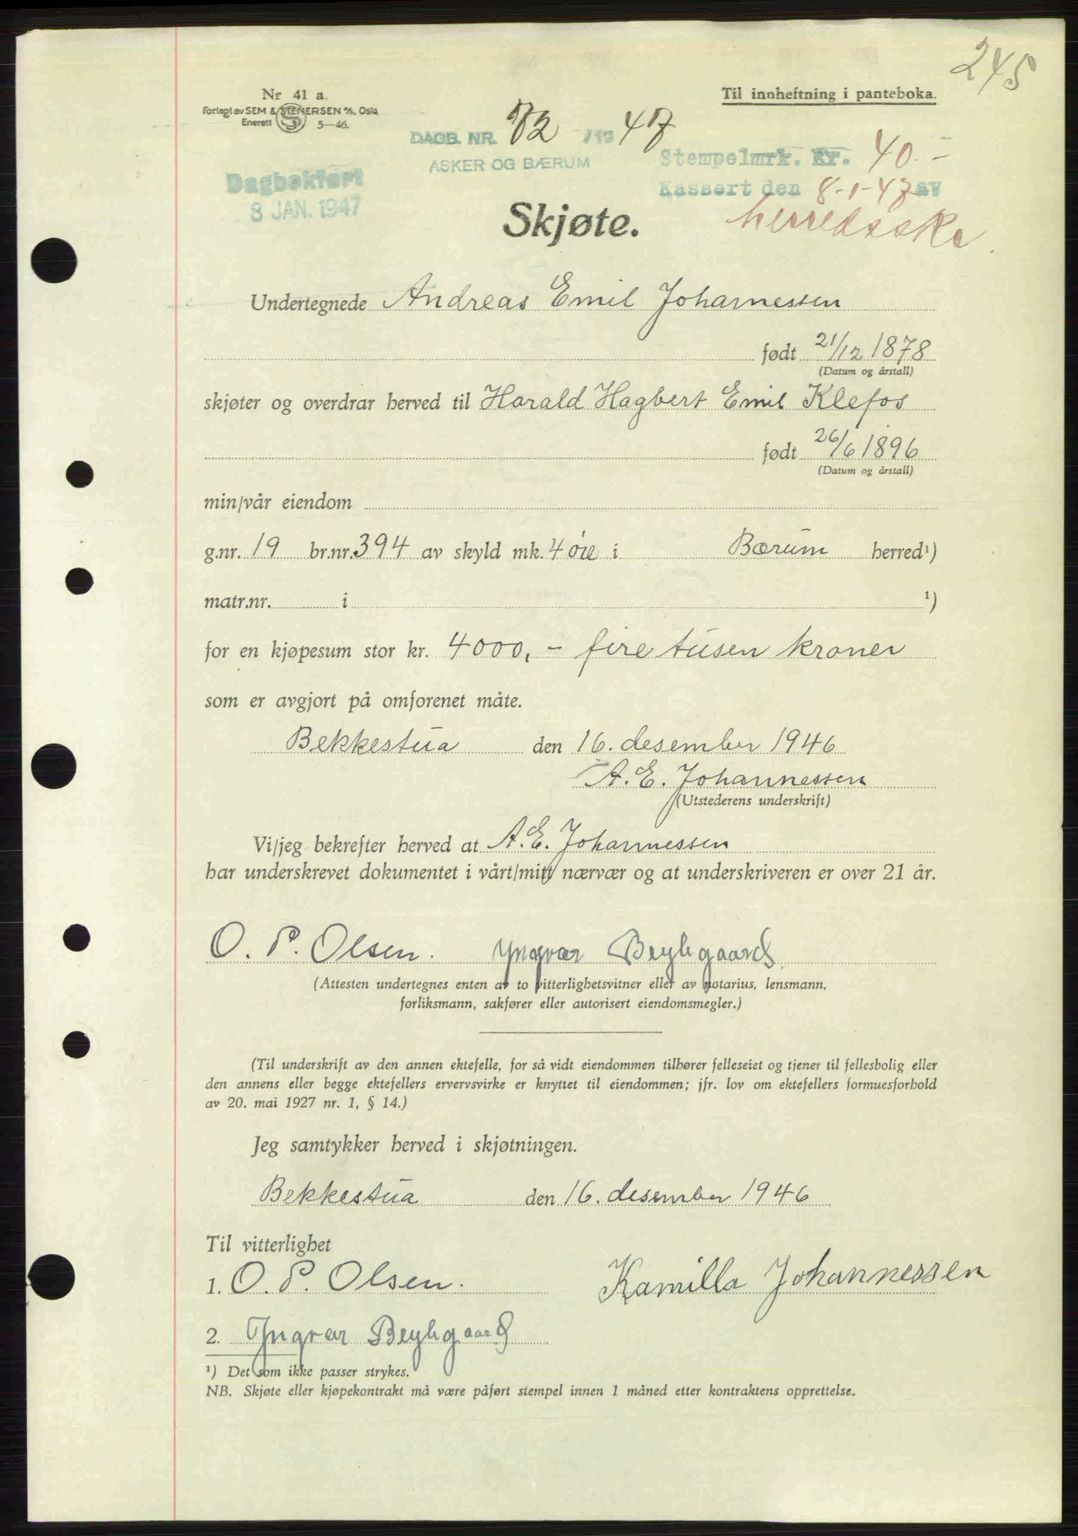 245
Nr 41 a.
Forlagt av SEM & STENERSEN A/S, Oslo
Enerett 5—46.
Til innheftning i panteboka.
DAGB. NR. 72 /19 47
ASKER OG BÆRUM
Stempelmrk. Kr. 40.-
Kassert den 8-1-47 av
Dagbokført
8 JAN. 1947
Skjøte.
Undertegnede Andreas Emil Johannessen
født 21/12 1878
(Datum og årstall)
skjøter og overdrar herved til Harald Hagbert Emil Klefos
født 26/6 1896
(Datum og årstall)
min/vår eiendom
g.nr. 19 br.nr. 394 av skyld mk. 4 øre i Bærum herred¹)
matr.nr. i ¹)
for en kjøpesum stor kr. 4000,- fire tusen kroner
som er avgjort på omforenet måte.
Bekkestua den 16. desember 1946
A. E. Johannessen
(Utstederens underskrift)
Vi/jeg bekrefter herved at A. E. Johannessen
har underskrevet dokumentet i vårt/mitt nærvær og at underskriveren er over 21 år.
O. P. Olsen. Yngvar
(Attesten undertegnes enten av to vitterlighetsvitner eller av notarius, lensmann,
forliksmann, sakfører eller autorisert eiendomsmegler.)
(Til underskrift av den annen ektefelle, for så vidt eiendommen tilhører felleseiet og tjener til fellesbolig eller
den annens eller begge ektefellers ervervsvirke er knyttet til eiendommen; jfr. lov om ektefellers formuesforhold
av 20. mai 1927 nr. 1, § 14.)
Jeg samtykker herved i skjøtningen.
Bekkestua den 16. desember 1946
Til vitterlighet
1. O. P. Olsen. Kamilla Johannessen
2. Yngvar
¹) Det som ikke passer strykes.
NB. Skjøte eller kjøpekontrakt må være påført stempel innen 1 måned etter kontraktens opprettelse.